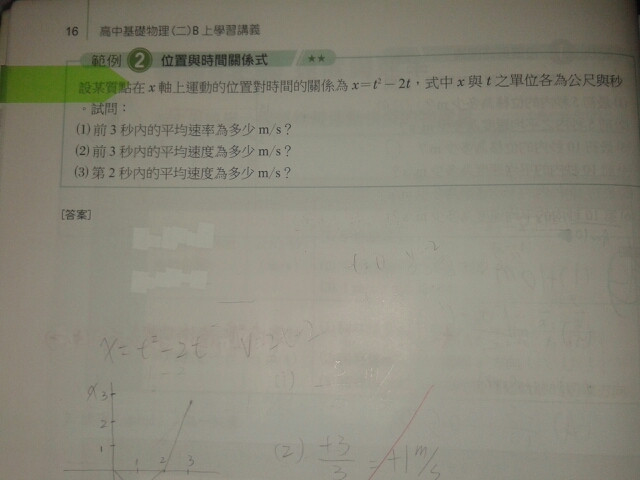 16 高中基礎物理(二)B 上學習講義
範例 2 位置與時間關係式 ★★
設某質點在 x 軸上運動的位置對時間的關係為 x=t²－2t，式中 x 與 t 之單位各為公尺與秒
。試問：
(1) 前 3 秒內的平均速率為多少 m/s？
(2) 前 3 秒內的平均速度為多少 m/s？
(3) 第 2 秒內的平均速度為多少 m/s？
[答案]
x=t²-2t
(1)
x 3
2
1
1 2 3
(2) +3/3 = +1 m/s